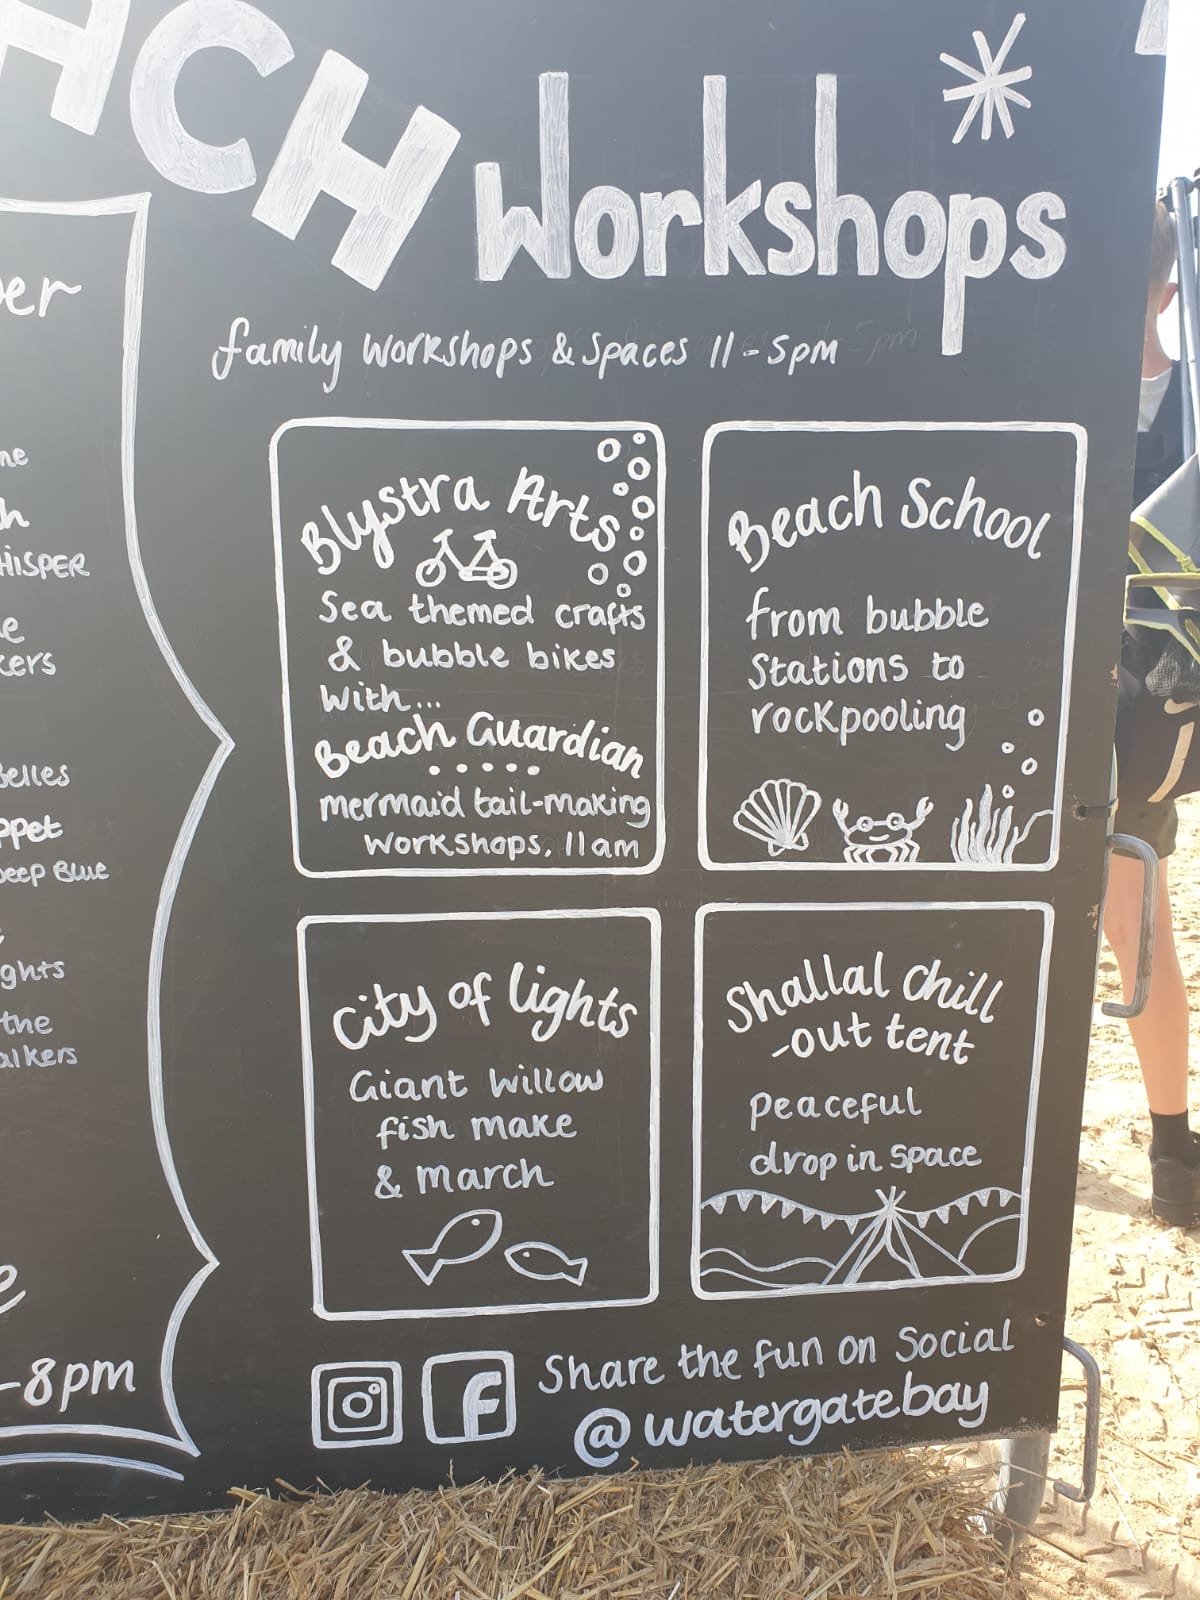 ACH
Workshops
family workshops & spaces 11-5pm
Blystra Arts
Sea themed crafts
& bubble bikes
with...
Beach Guardian
mermaid tail-making
workshops, 11am
Beach School
from bubble
stations to
rockpooling
City of lights
Giant willow
fish make
& march
Shallal Chill
-out tent
peaceful
drop in space
Share the fun on social
@watergatebay
er
ne
h
HISPER
e
kers
Belles
ppet
Deep Blue
ghts
the
alkers
e
-8pm